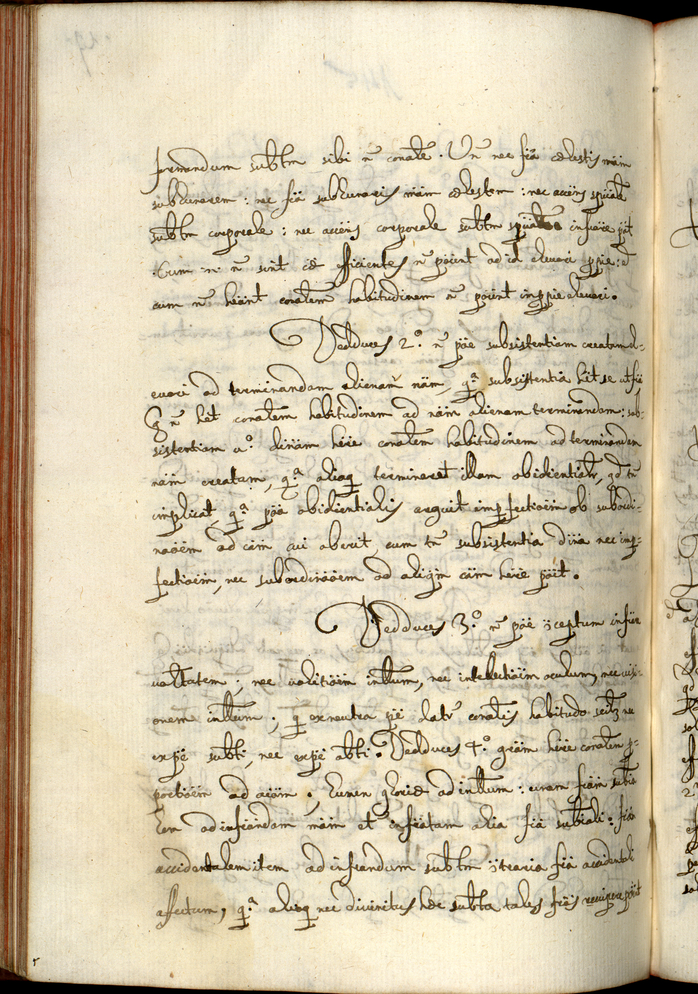 formandum subtm sibi n̄ conalē. Un̄ nec fiā cælestis mām
sublunarem: nec fiā sublunaris mām cælestem: nec accīns spūale
subtm corporale: nec accīns corporale subtm spūale inficere pōt
.Cum .n. n̄ sint efficientes n̄ pōūnt ad id elevari
cum n̄ heānt conalem habitudinem n̄ pōūnt elevari.
Dedduces 2.º n̄ pōe subsistentiam creatam el-
evari ad terminandam alienam nām, q.ª subsistentia hēt se ut fiā
q̄ n̄ hēt conalem habitudinem ad nām alienam terminandam: sub-
sistentiam a.º divīnam hēre conalem habitudinem ad terminandam
nām creatam, q.ª alioq̄ terminaret illam obidientialr, qd tn̄
implicat, q.ª pōā obidientialis arguit imp̄fectioēm ob subordi-
naōēm ad cām cui oberit, cum tn̄ subsistentia divīa nec imp̄-
fectioēm, nec subordināōēm ad aliqm cām hēre pōīt.
Dedduces 3.º n̄ pōe ceptum
voltatem; nec volitioēm intllum, nec intelectioēm oculum, nec visi-
onem intllum; q̄ ex neutra datr conalis habitudo nec
subti, nec abti. Dedduces 4.º grām hēre conalem p̄-
portioēm ad aīām; lumen gloriæ ad intllum: unam fiām
ad infiandam mām et infiatam alia fiā subtiali: fiā
accidentalem item ad infiandum subtm fiā accidentali
affectum, q.ª alioq̄ nec divinitus hæc subta tales fiās recipere pōīt